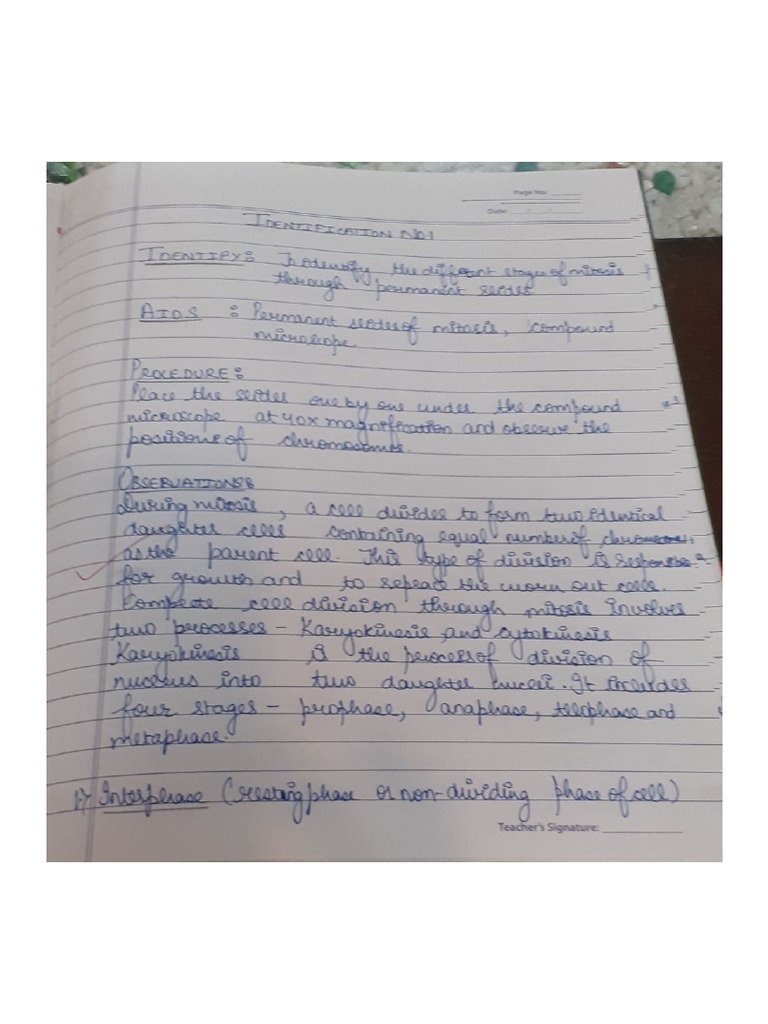 Page No:
Date: / /
IDENTIFICATION NO1
IDENTIFY: To identify the different stages of mitosis
through permanent slides
AIDS : Permanent slides of mitosis, compound
microscope.
PROCEDURE:
Place the slides one by one under the compound
microscope at 40x magnification and observe the
positions of chromosomes.
OBSERVATIONS:
During mitosis, a cell divides to form two identical
daughter cells containing equal number of
as the parent cell. This type of division is
for growth and to repeat the worn out cells.
Complete cell division through mitosis involves
two processes - Karyokinesis and cytokinesis
Karyokinesis is the process of division of
nucleus into two daughter nuclei. It includes
four stages - prophase, anaphase, telophase and
metaphase.
1) Interphase (resting phase or non-dividing phase of cell)
Teacher's Signature: